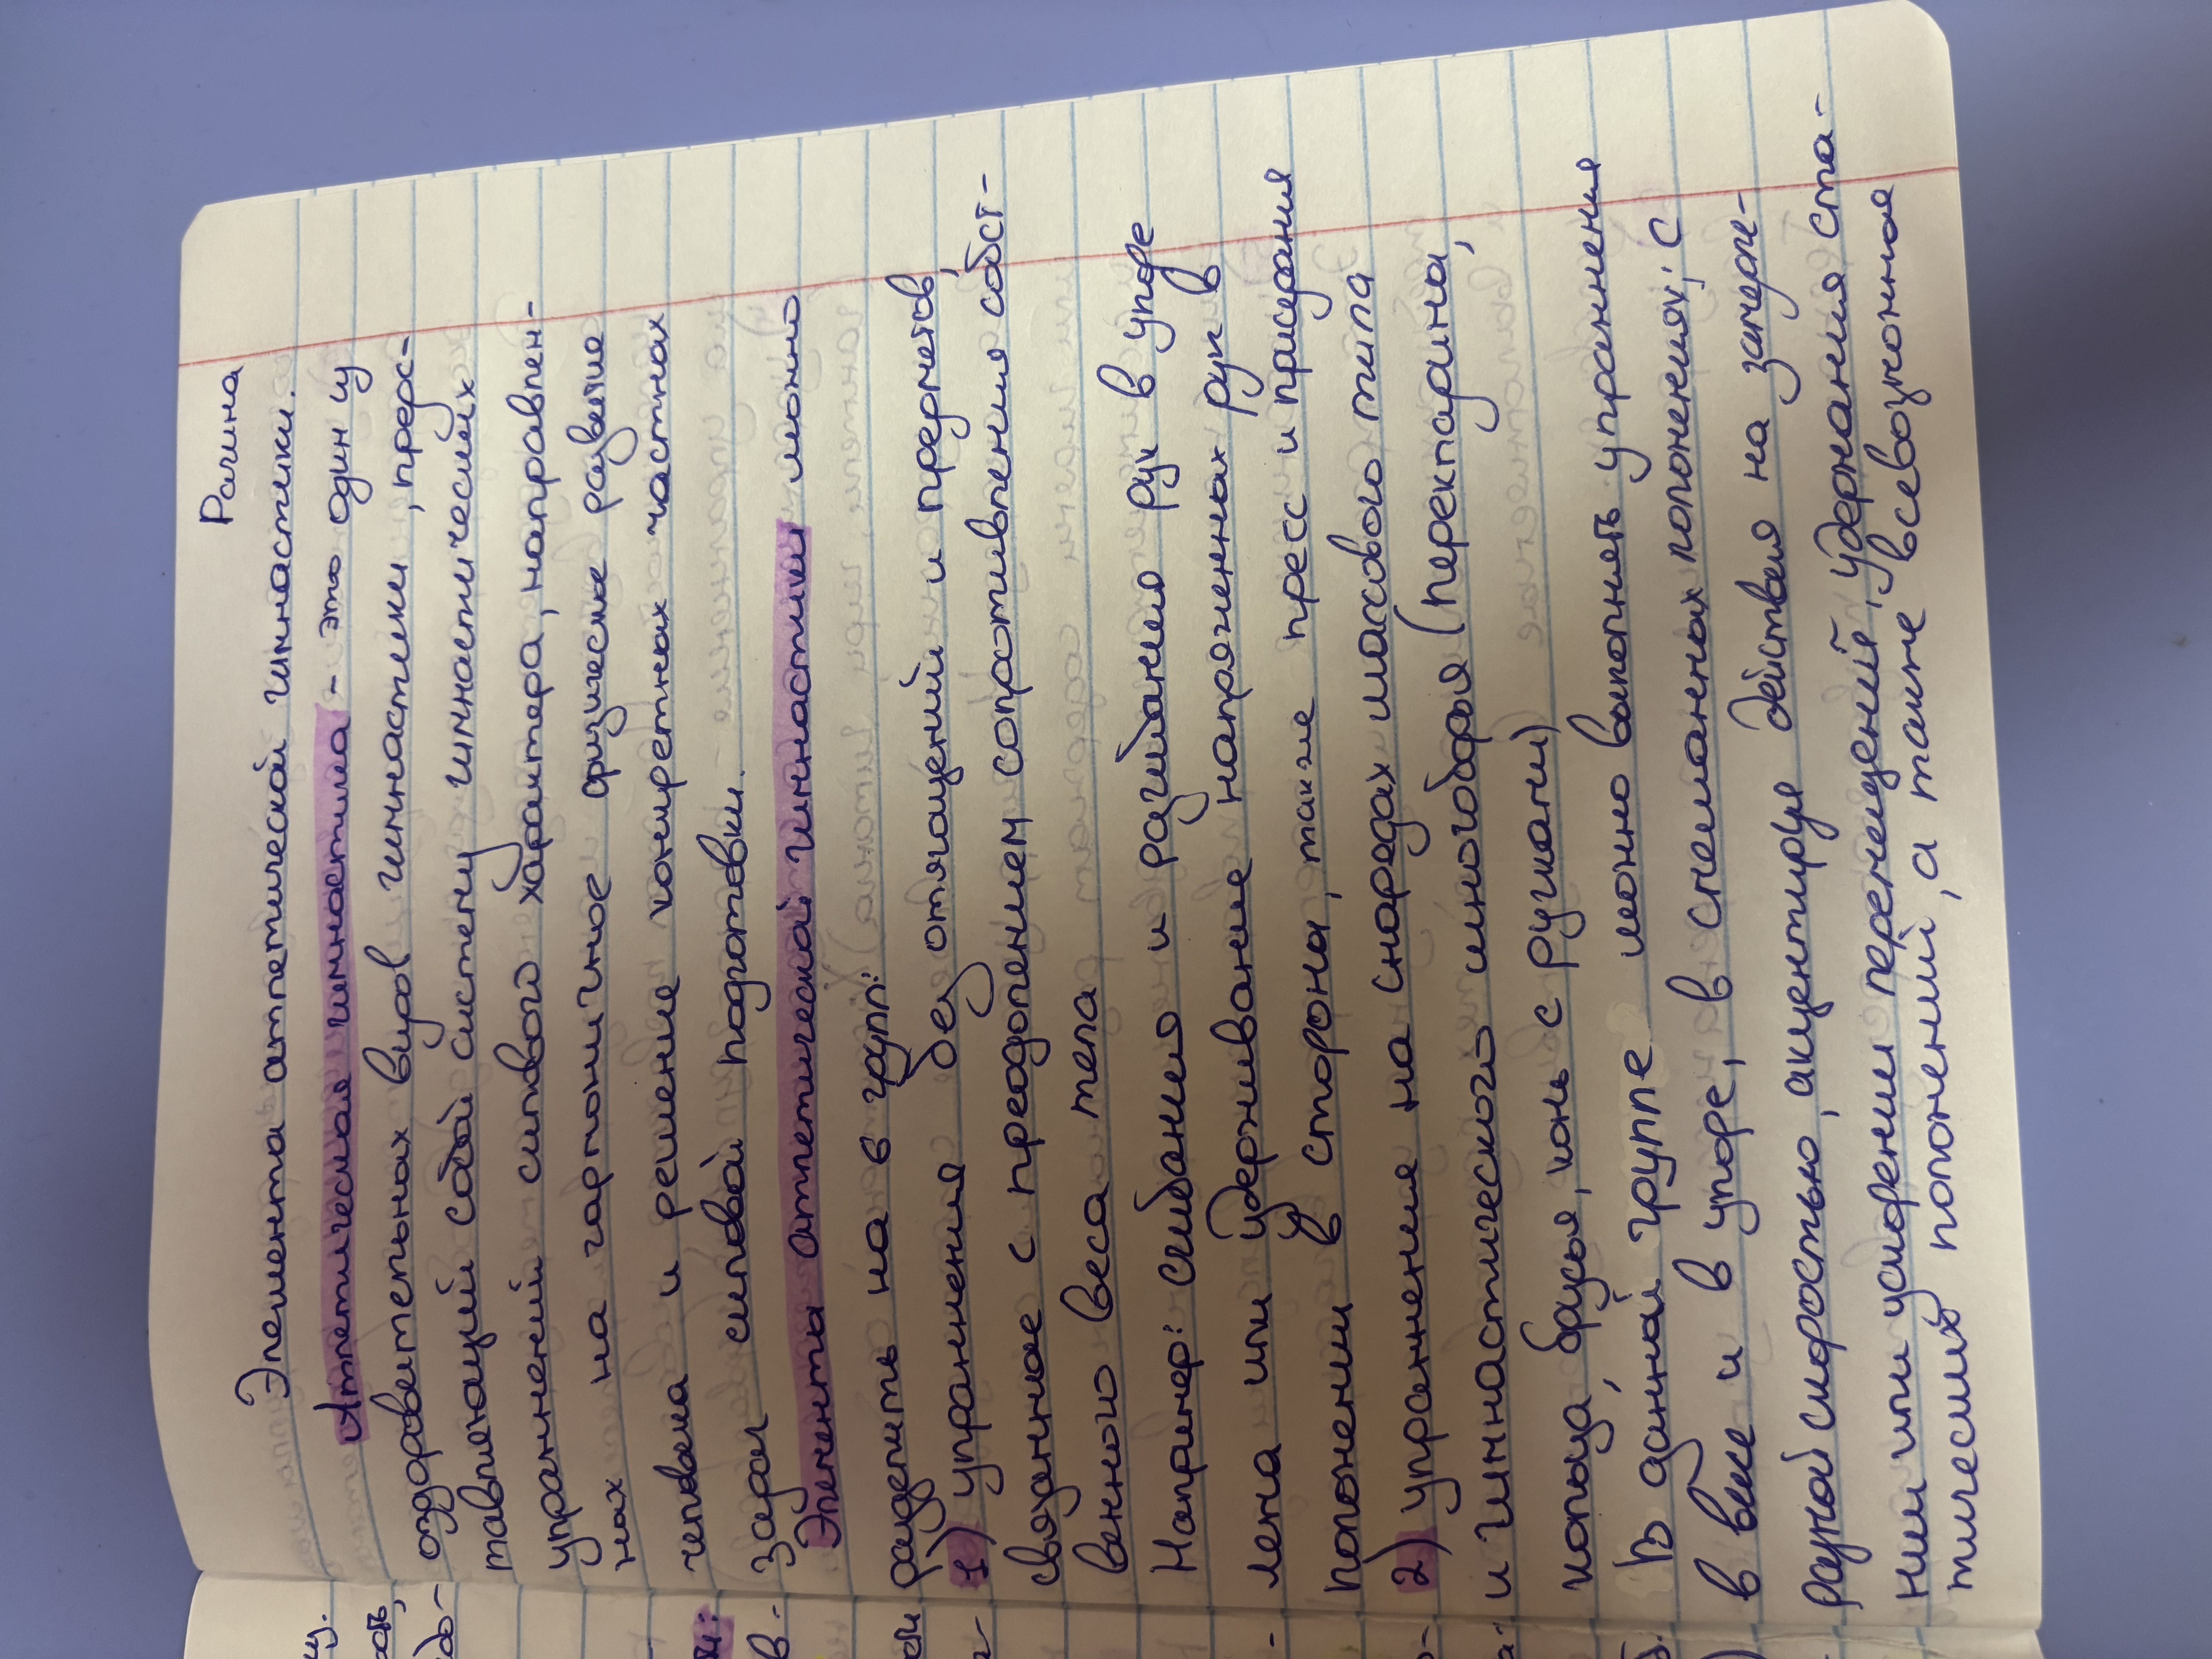 Рагина
Элементы атлетической гимнастики.
Атлетическая гимнастика - это один из
оздоровительных видов гимнастики, предс-
тавляющий собой систему гимнастических
упражнений силового характера, направлен-
ных на гармоничное физическое развитие
человека и решение конкретных частных
задач силовой подготовки.
Элементы атлетической гимнастики можно
разделить на 6 групп:
1) упражнения без отягощений и предметов,
связанное с преодолением сопротивления собст-
венного веса тела
Например: сгибания и разгибания рук в упоре
лежа или удерживание напряженных рук в
положении в стороны, также пресс и приседания
2) упражнения на снарядах массового типа
и гимнастического многоборья (перекладина,
кольца, брусья, конь с ручками)
В данной группе можно выполнять упражнения
в висе и в упоре, в смешанных положениях; с
разной скоростью, акцентируя действия на замедле-
нии или ускорении перемещений, удержания ста-
тических положений, а также всевозможные